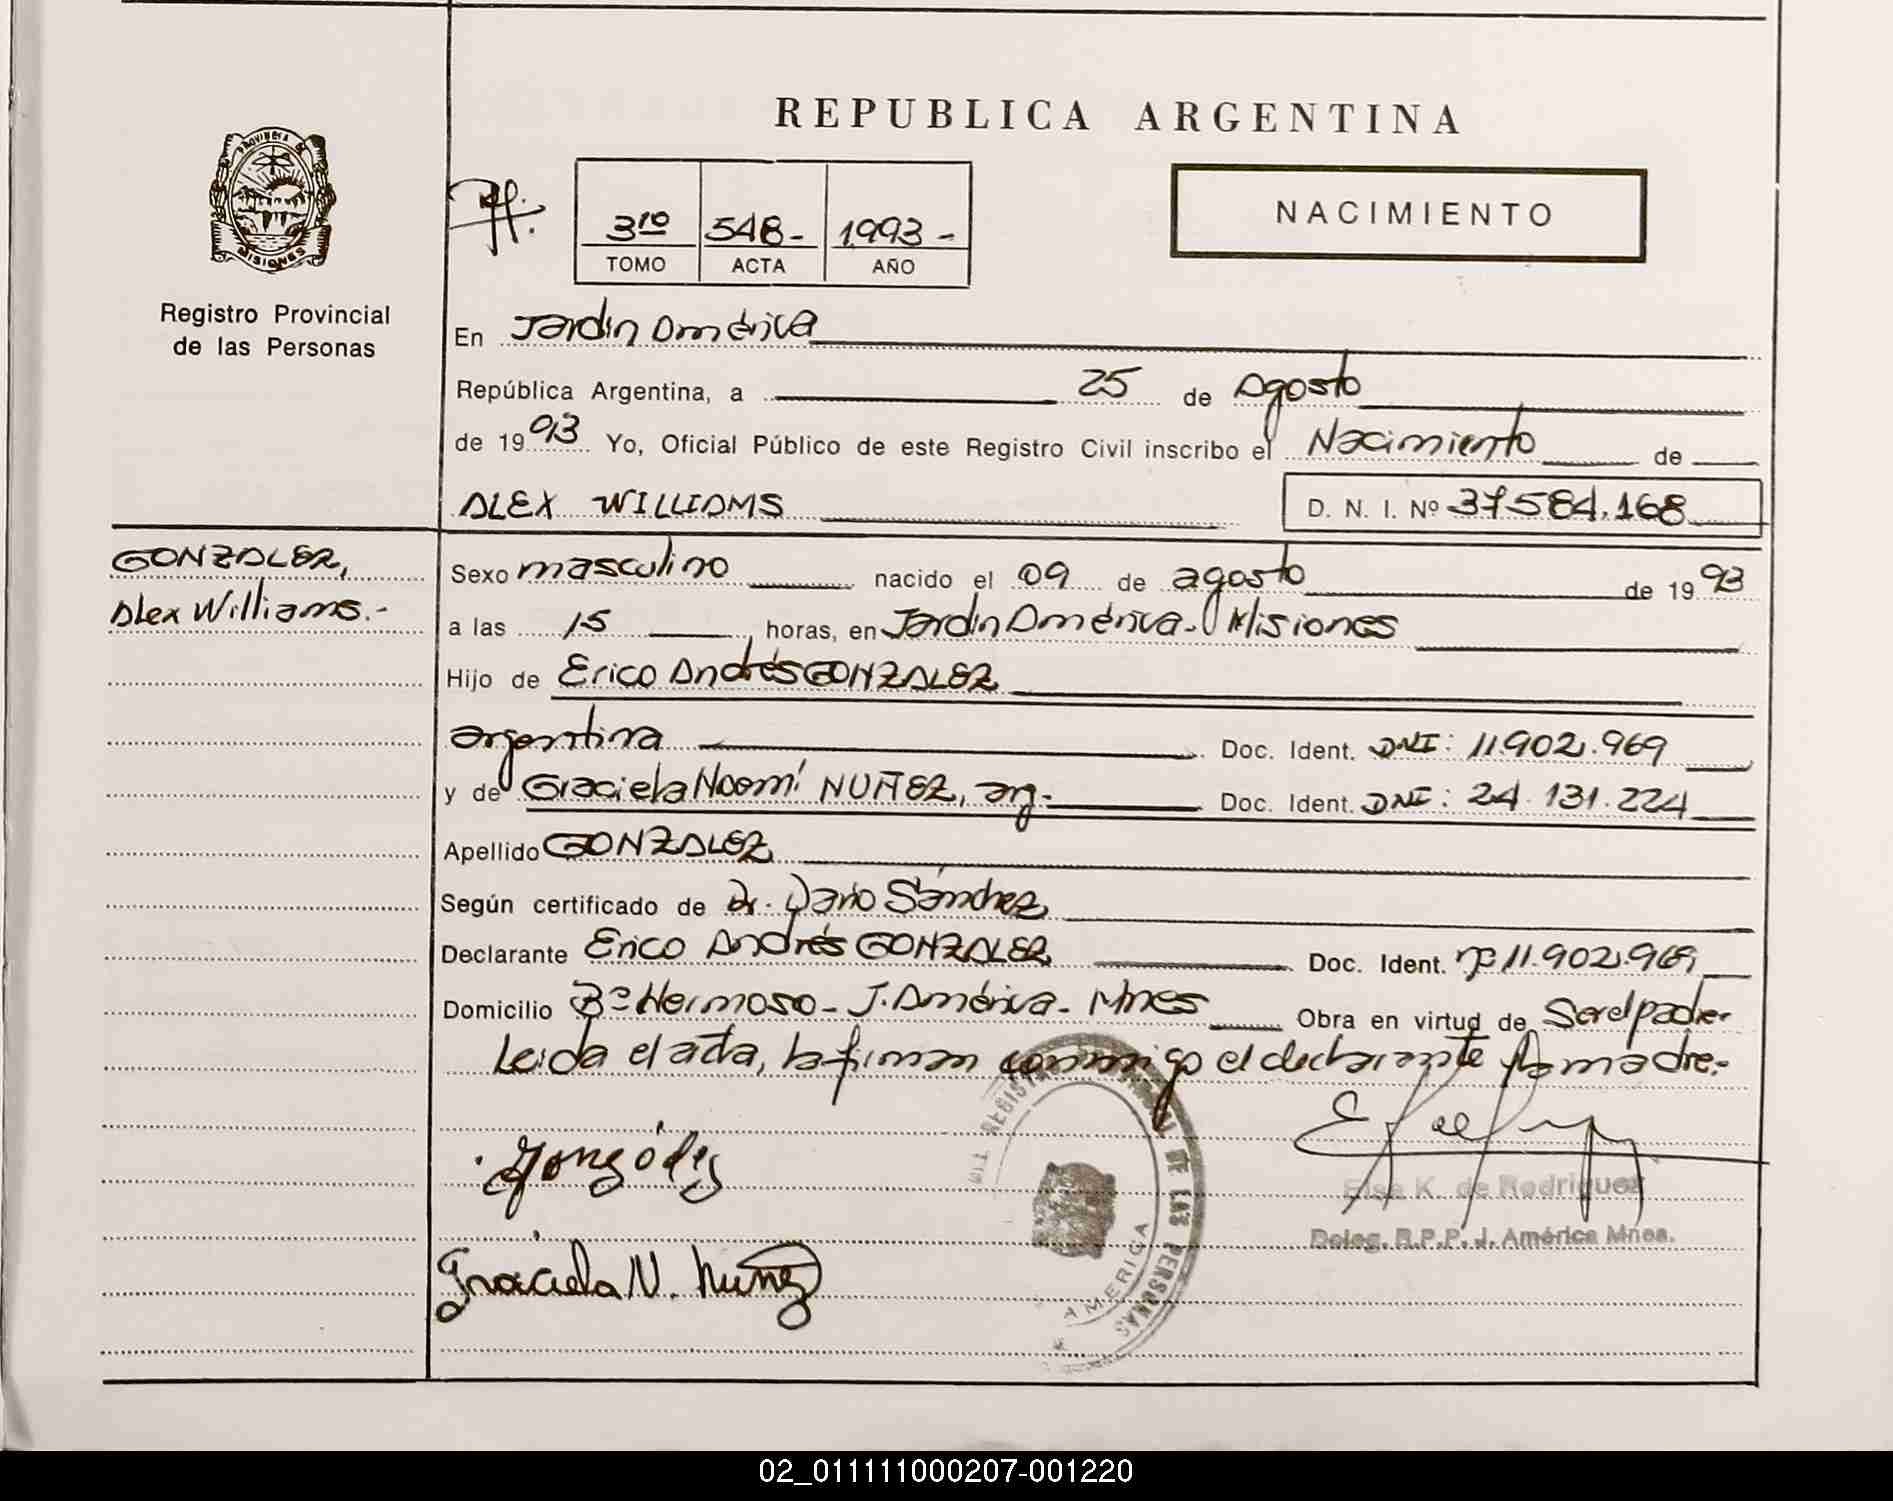 REPUBLICA ARGENTINA
PROVINCIA DE MISIONES
Registro Provincial
de las Personas
3ro 548- 1993-
TOMO ACTA AÑO
NACIMIENTO
En Jardín América
República Argentina, a 25 de Agosto
de 1993 Yo, Oficial Público de este Registro Civil inscribo el Nacimiento de
ALEX WILLIAMS D. N. I. Nº 37584.168
GONZALEZ,
Alex Williams.-
Sexo masculino nacido el 09 de agosto de 1993
a las 15 horas, en Jardín América - Misiones
Hijo de Erico Andrés GONZALEZ
argentina Doc. Ident. DNI: 11.902.969
y de Graciela Noemí NUÑEZ, arg.- Doc. Ident. DNI: 24.131.224
Apellido GONZALEZ
Según certificado de Dr. Dario Sánchez
Declarante Erico Andrés GONZALEZ Doc. Ident. nº 11.902.969
Domicilio Bº Hermoso - J. América - Mnes Obra en virtud de Ser el padre-
Leida el acta, la firman conmigo el declarante y la madre.-
Gonzáles
Graciela N. Nuñez
REGISTRO PROVINCIAL DE LAS PERSONAS
AMERICA
Elsa K. de Rodriguez
Deleg. R.P.P. J. América Mnes.
02_011111000207-001220